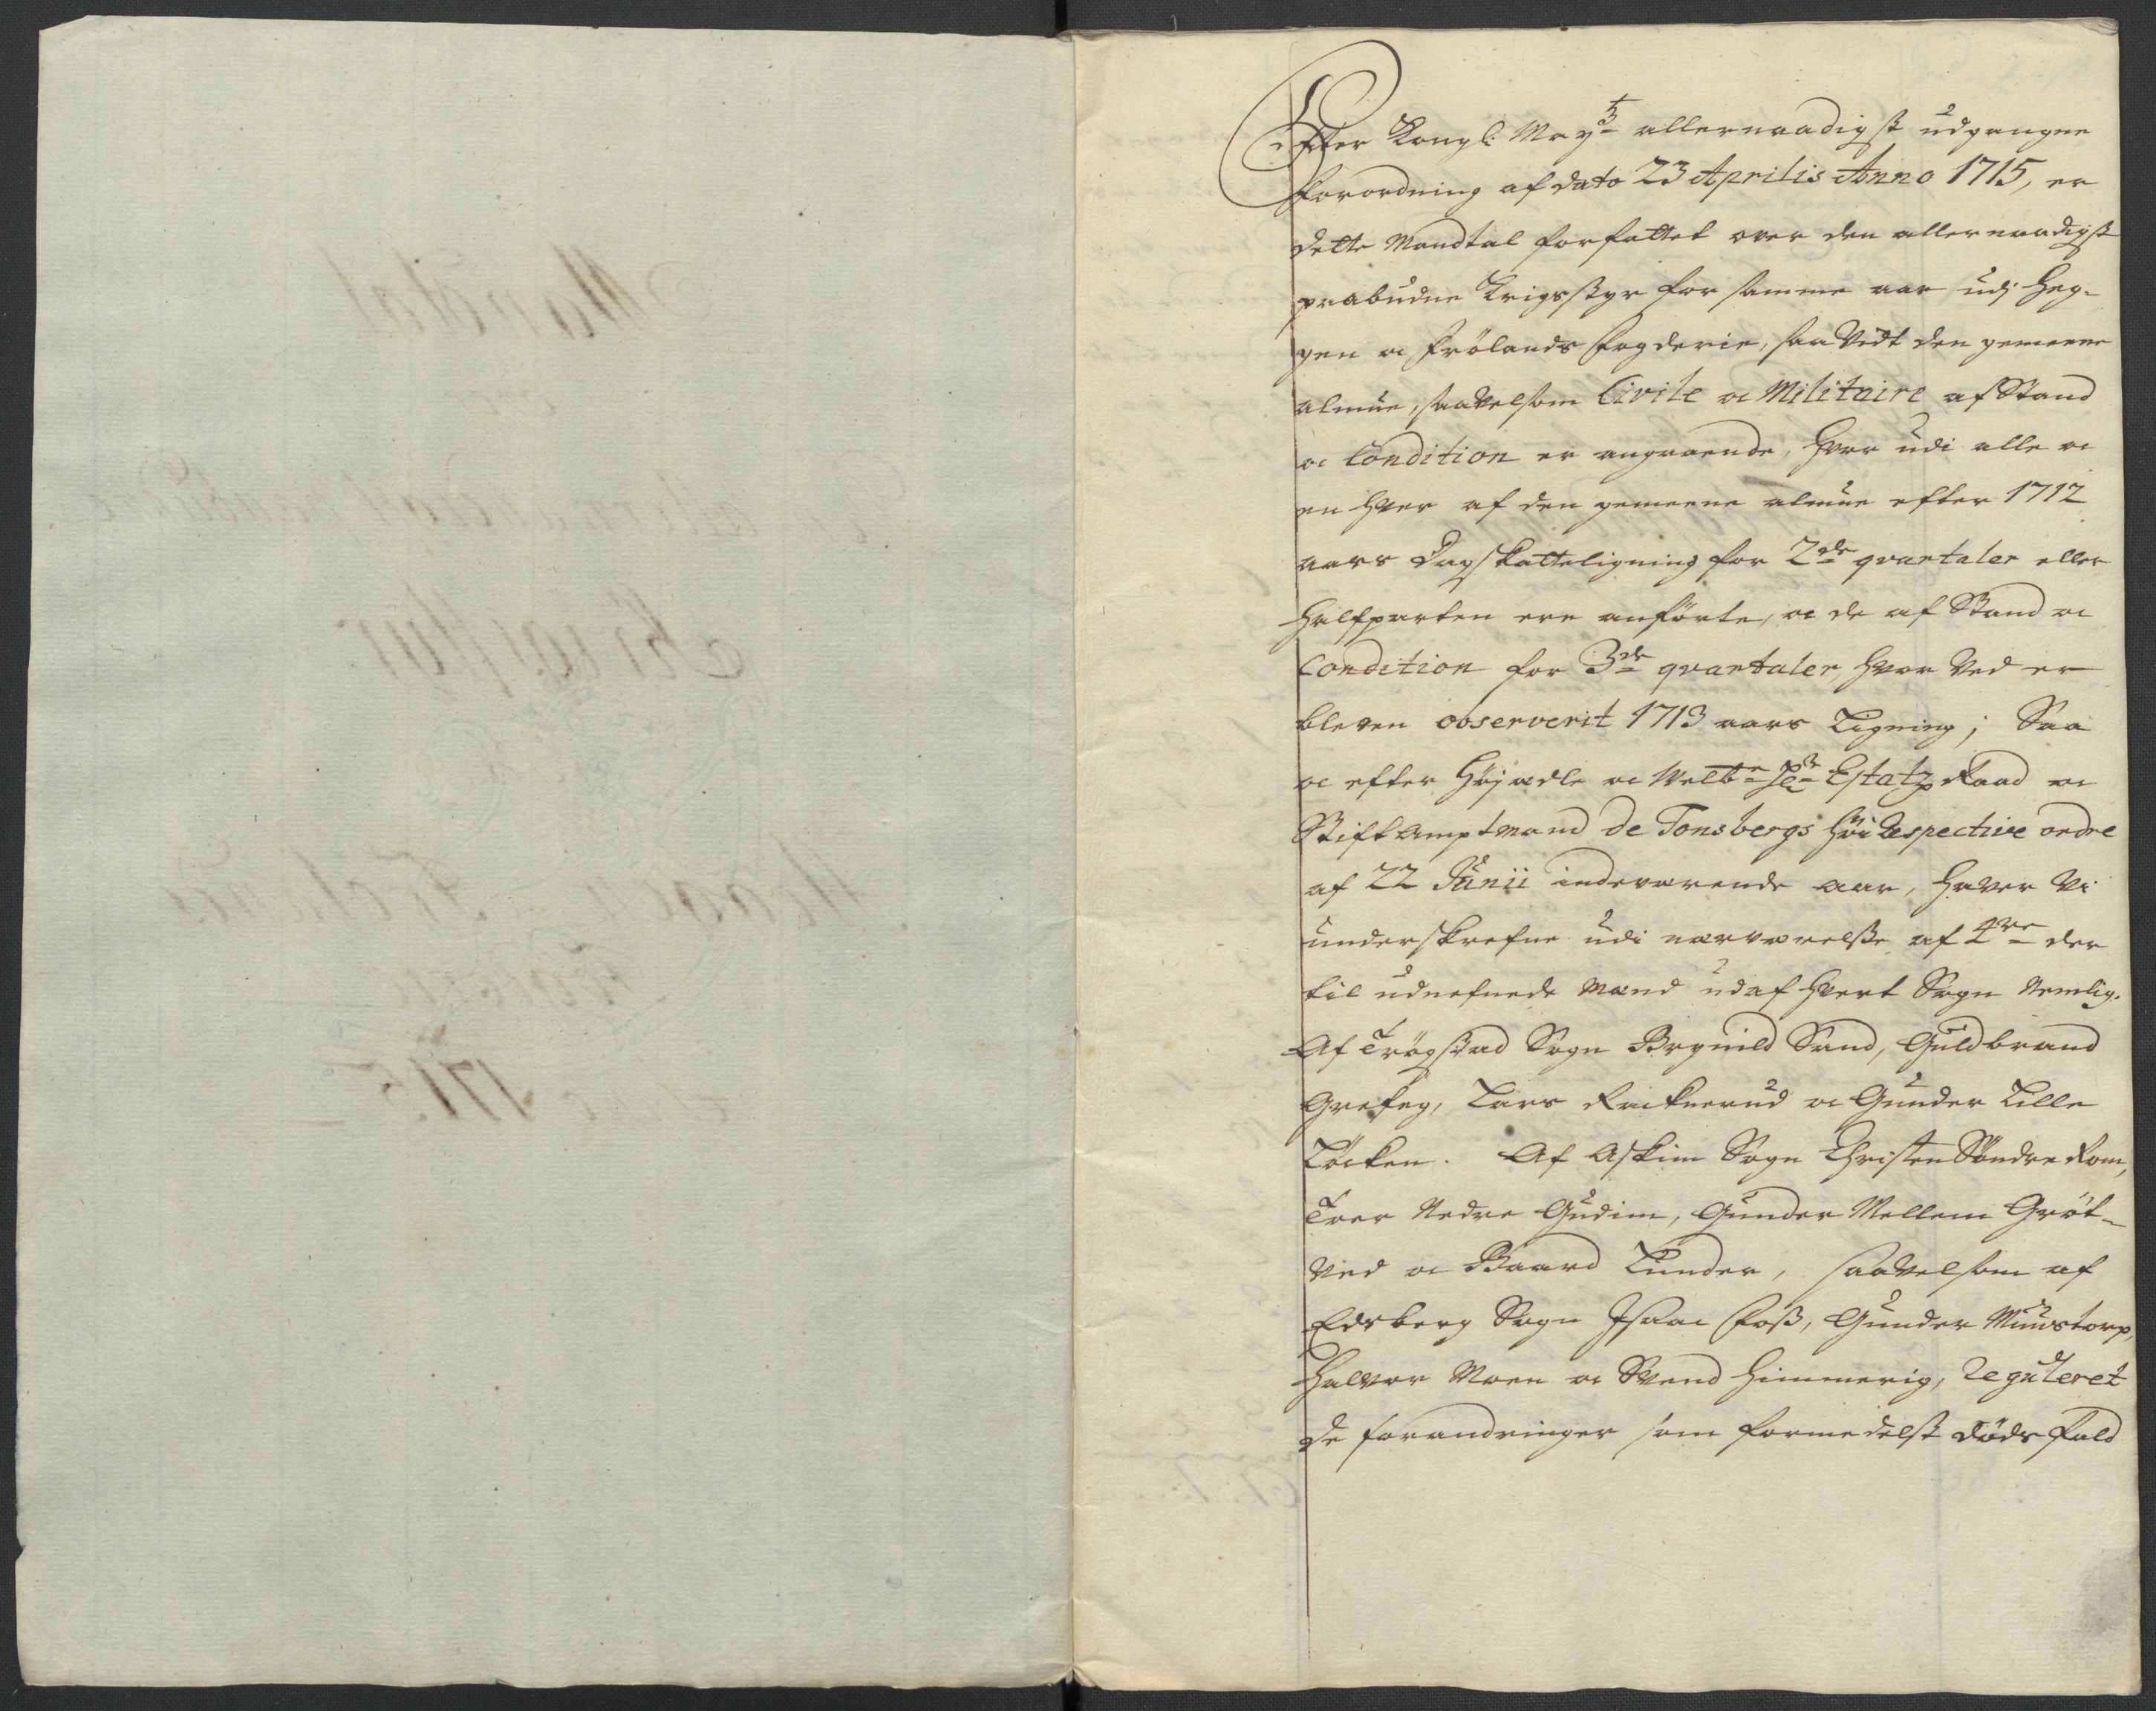 Efter Kongl: May:ts allernaadigst udgangne
Forordning af dato 23 Aprilis Anno 1715, er
dette Mandtal forfattet over den allernaadigst
paabudne Krigsstyr for samme aar udj Heg-
gen oc Frølands Fogderie, saa Vidt den gemeene
almue, saavelsom Civile oc Militaire af Stand
oc Condition er angaaende, hvor udi alle oc
en hver af den gemeene almue efter 1712
aars Dagskatteligning for 2de qvartaler eller
Halfparten ere anførte, oc de af Stand oc
Condition for 3de qvartaler, hvor Ved er
bleven observerit 1713 aars Ligning; Saa
oc efter Høyædle oc Welbne Hr Estatz Raad oc
Stiftamptmand de Tonsbergs Høi Respective ordre
af 22 Junii indeværende aar, haver Vi
underskrefne udi nærværelse af 4re der
til udnefnede Mænd udaf hvert Sogn Nemlig.
Af Trøgstad Sogn Brynild Sand, Guldbrand
Grefeg, Lars Rachnerud oc Gunder Lille
Løcken. Af Askim Sogn Christen Søndre Rom,
Toer Nedre Gudim, Gunder Mellem Grøt-
Vied oc Baard Lunder, saavelsom af
Edsberg Sogn Isaac Foss, Gunder Muustorp,
Halvor Moen oc Svend Himmerig, Reguleret
de forandringer som formedelst dødsfald